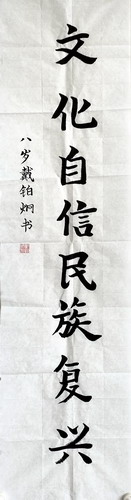 文化自信民族复兴
八岁戴铂炯书